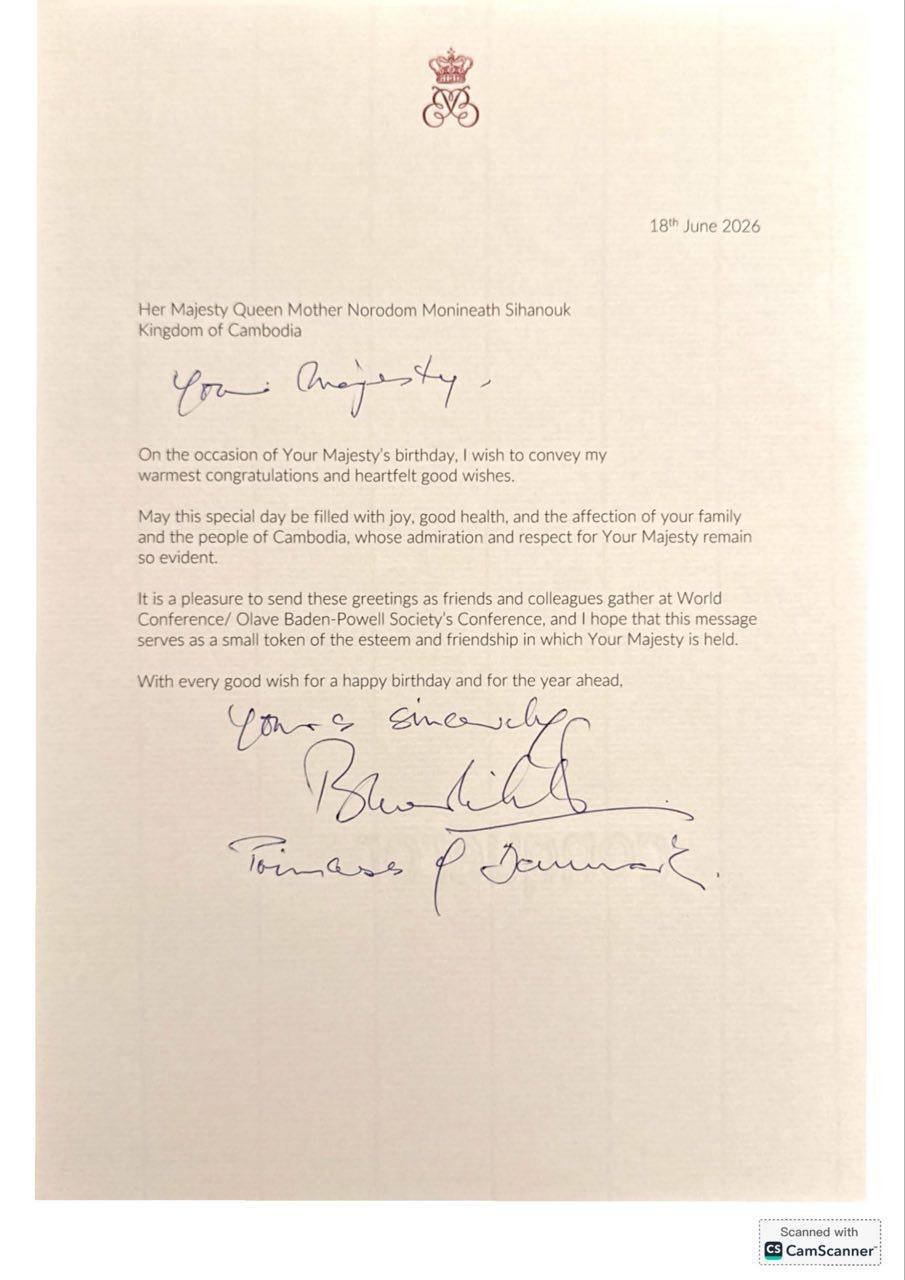 18th June 2026
Her Majesty Queen Mother Norodom Monineath Sihanouk
Kingdom of Cambodia
Your Majesty,
On the occasion of Your Majesty's birthday, I wish to convey my
warmest congratulations and heartfelt good wishes.
May this special day be filled with joy, good health, and the affection of your family
and the people of Cambodia, whose admiration and respect for Your Majesty remain
so evident.
It is a pleasure to send these greetings as friends and colleagues gather at World
Conference/ Olave Baden-Powell Society's Conference, and I hope that this message
serves as a small token of the esteem and friendship in which Your Majesty is held.
With every good wish for a happy birthday and for the year ahead,
Yours sincerely
of Denmark.
Scanned with
CS CamScanner